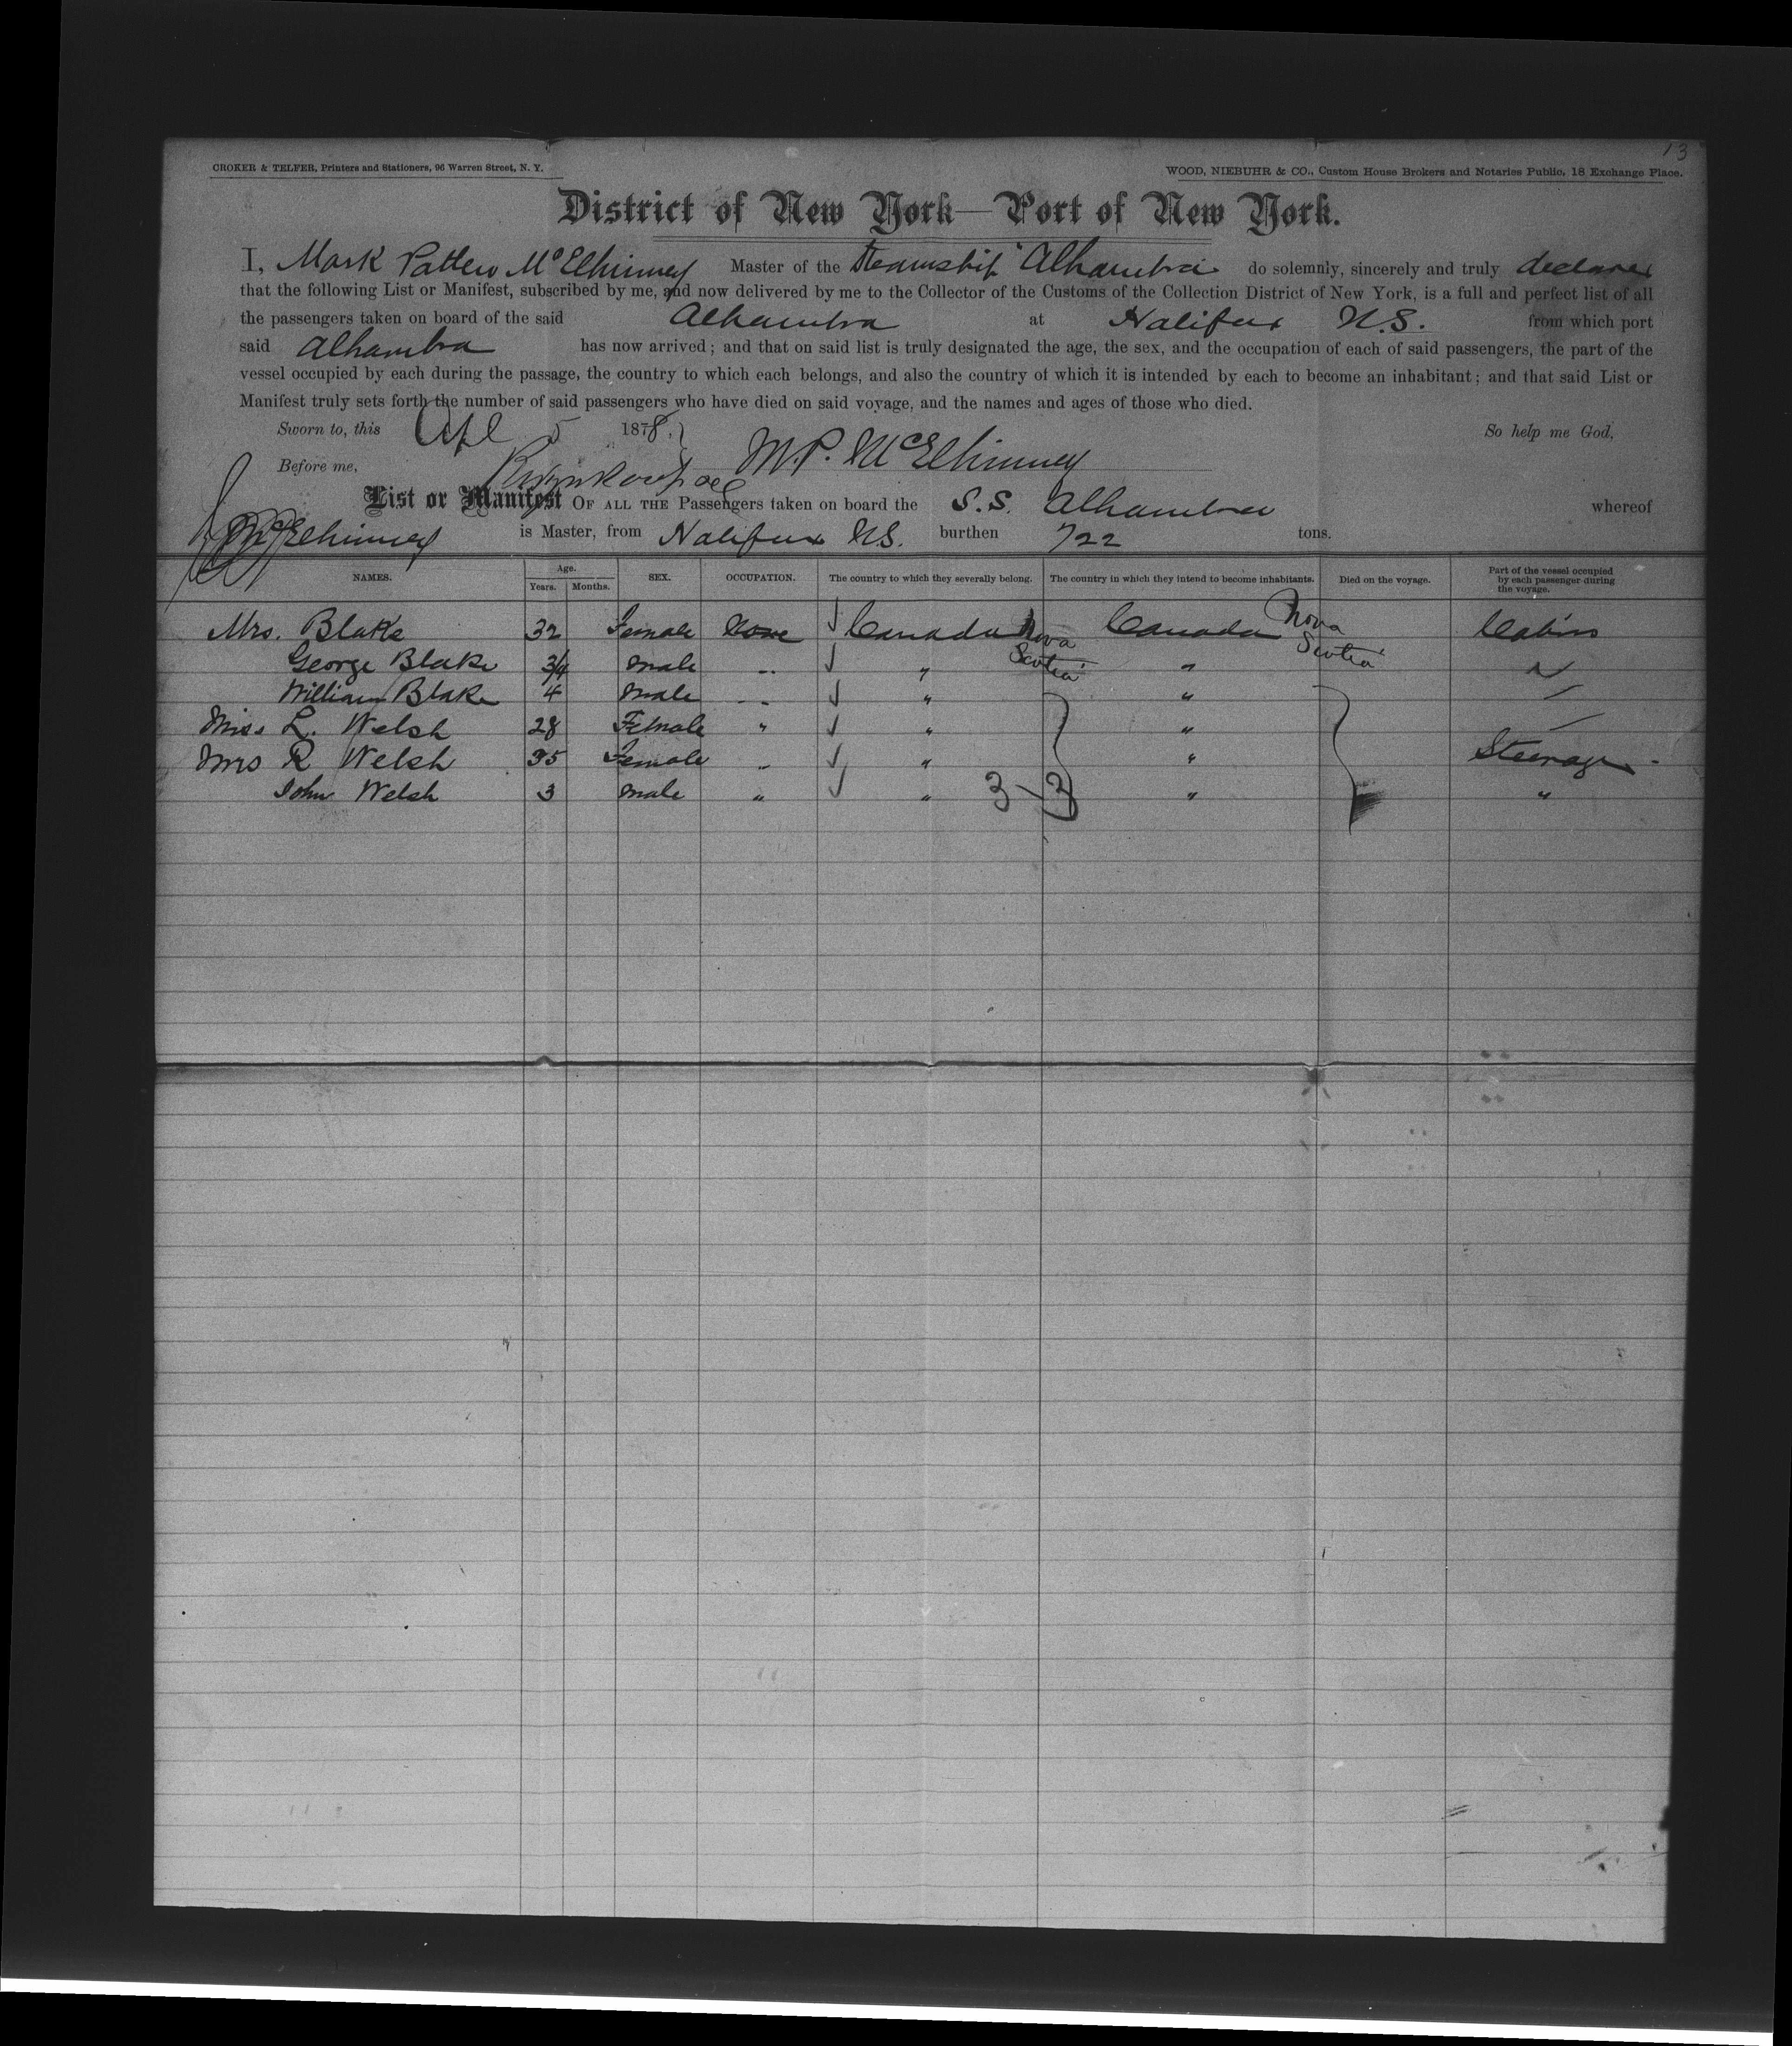 13
CROKER & TELFER, Printers and Stationers, 96 Warren Street, N. Y.
WOOD, NIEBUHR & CO., Custom House Brokers and Notaries Public, 18 Exchange Place.
District of New York—Port of New York.
I, Mark Patten McElhinney Master of the Steamship "Alhambra do solemnly, sincerely and truly declare
that the following List or Manifest, subscribed by me, and now delivered by me to the Collector of the Customs of the Collection District of New York, is a full and perfect list of all
the passengers taken on board of the said Alhambra at Halifax N.S. from which port
said Alhambra has now arrived; and that on said list is truly designated the age, the sex, and the occupation of each of said passengers, the part of the
vessel occupied by each during the passage, the country to which each belongs, and also the country of which it is intended by each to become an inhabitant; and that said List or
Manifest truly sets forth the number of said passengers who have died on said voyage, and the names and ages of those who died.
Sworn to, this Apl 5 1878, So help me God,
Before me, M.P. McElhinney
List or Manifest OF ALL THE Passengers taken on board the S.S. Alhambra whereof
McElhinney is Master, from Halifax N.S. burthen 722 tons.
NAMES. Age. Years. Months. SEX. OCCUPATION. The country to which they severally belong. The country in which they intend to become inhabitants. Died on the voyage. Part of the vessel occupied by each passenger during the voyage.
Mrs. Blake 32 Female None Canada Nova Scotia Canada Nova Scotia Cabin
George Blake 3/4 male " " "
William Blake 4 male " " "
Miss L. Welsh 28 Female " " "
Mrs R Welsh 35 Female " " " Steerage
John Welsh 3 male " " 3-3 " "